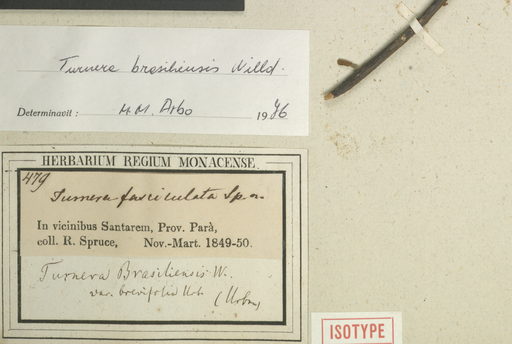 Turnera brasiliensis Willd.
Determinavit : M.M. Arbo 1996
HERBARIUM REGIUM MONACENSE.
479
Turnera fasciculata Sp. n.
In vicinibus Santarem, Prov. Parà,
coll. R. Spruce, Nov.-Mart. 1849-50.
Turnera Brasiliensis W.
var. brevifolia Urb. (Urban)
ISOTYPE